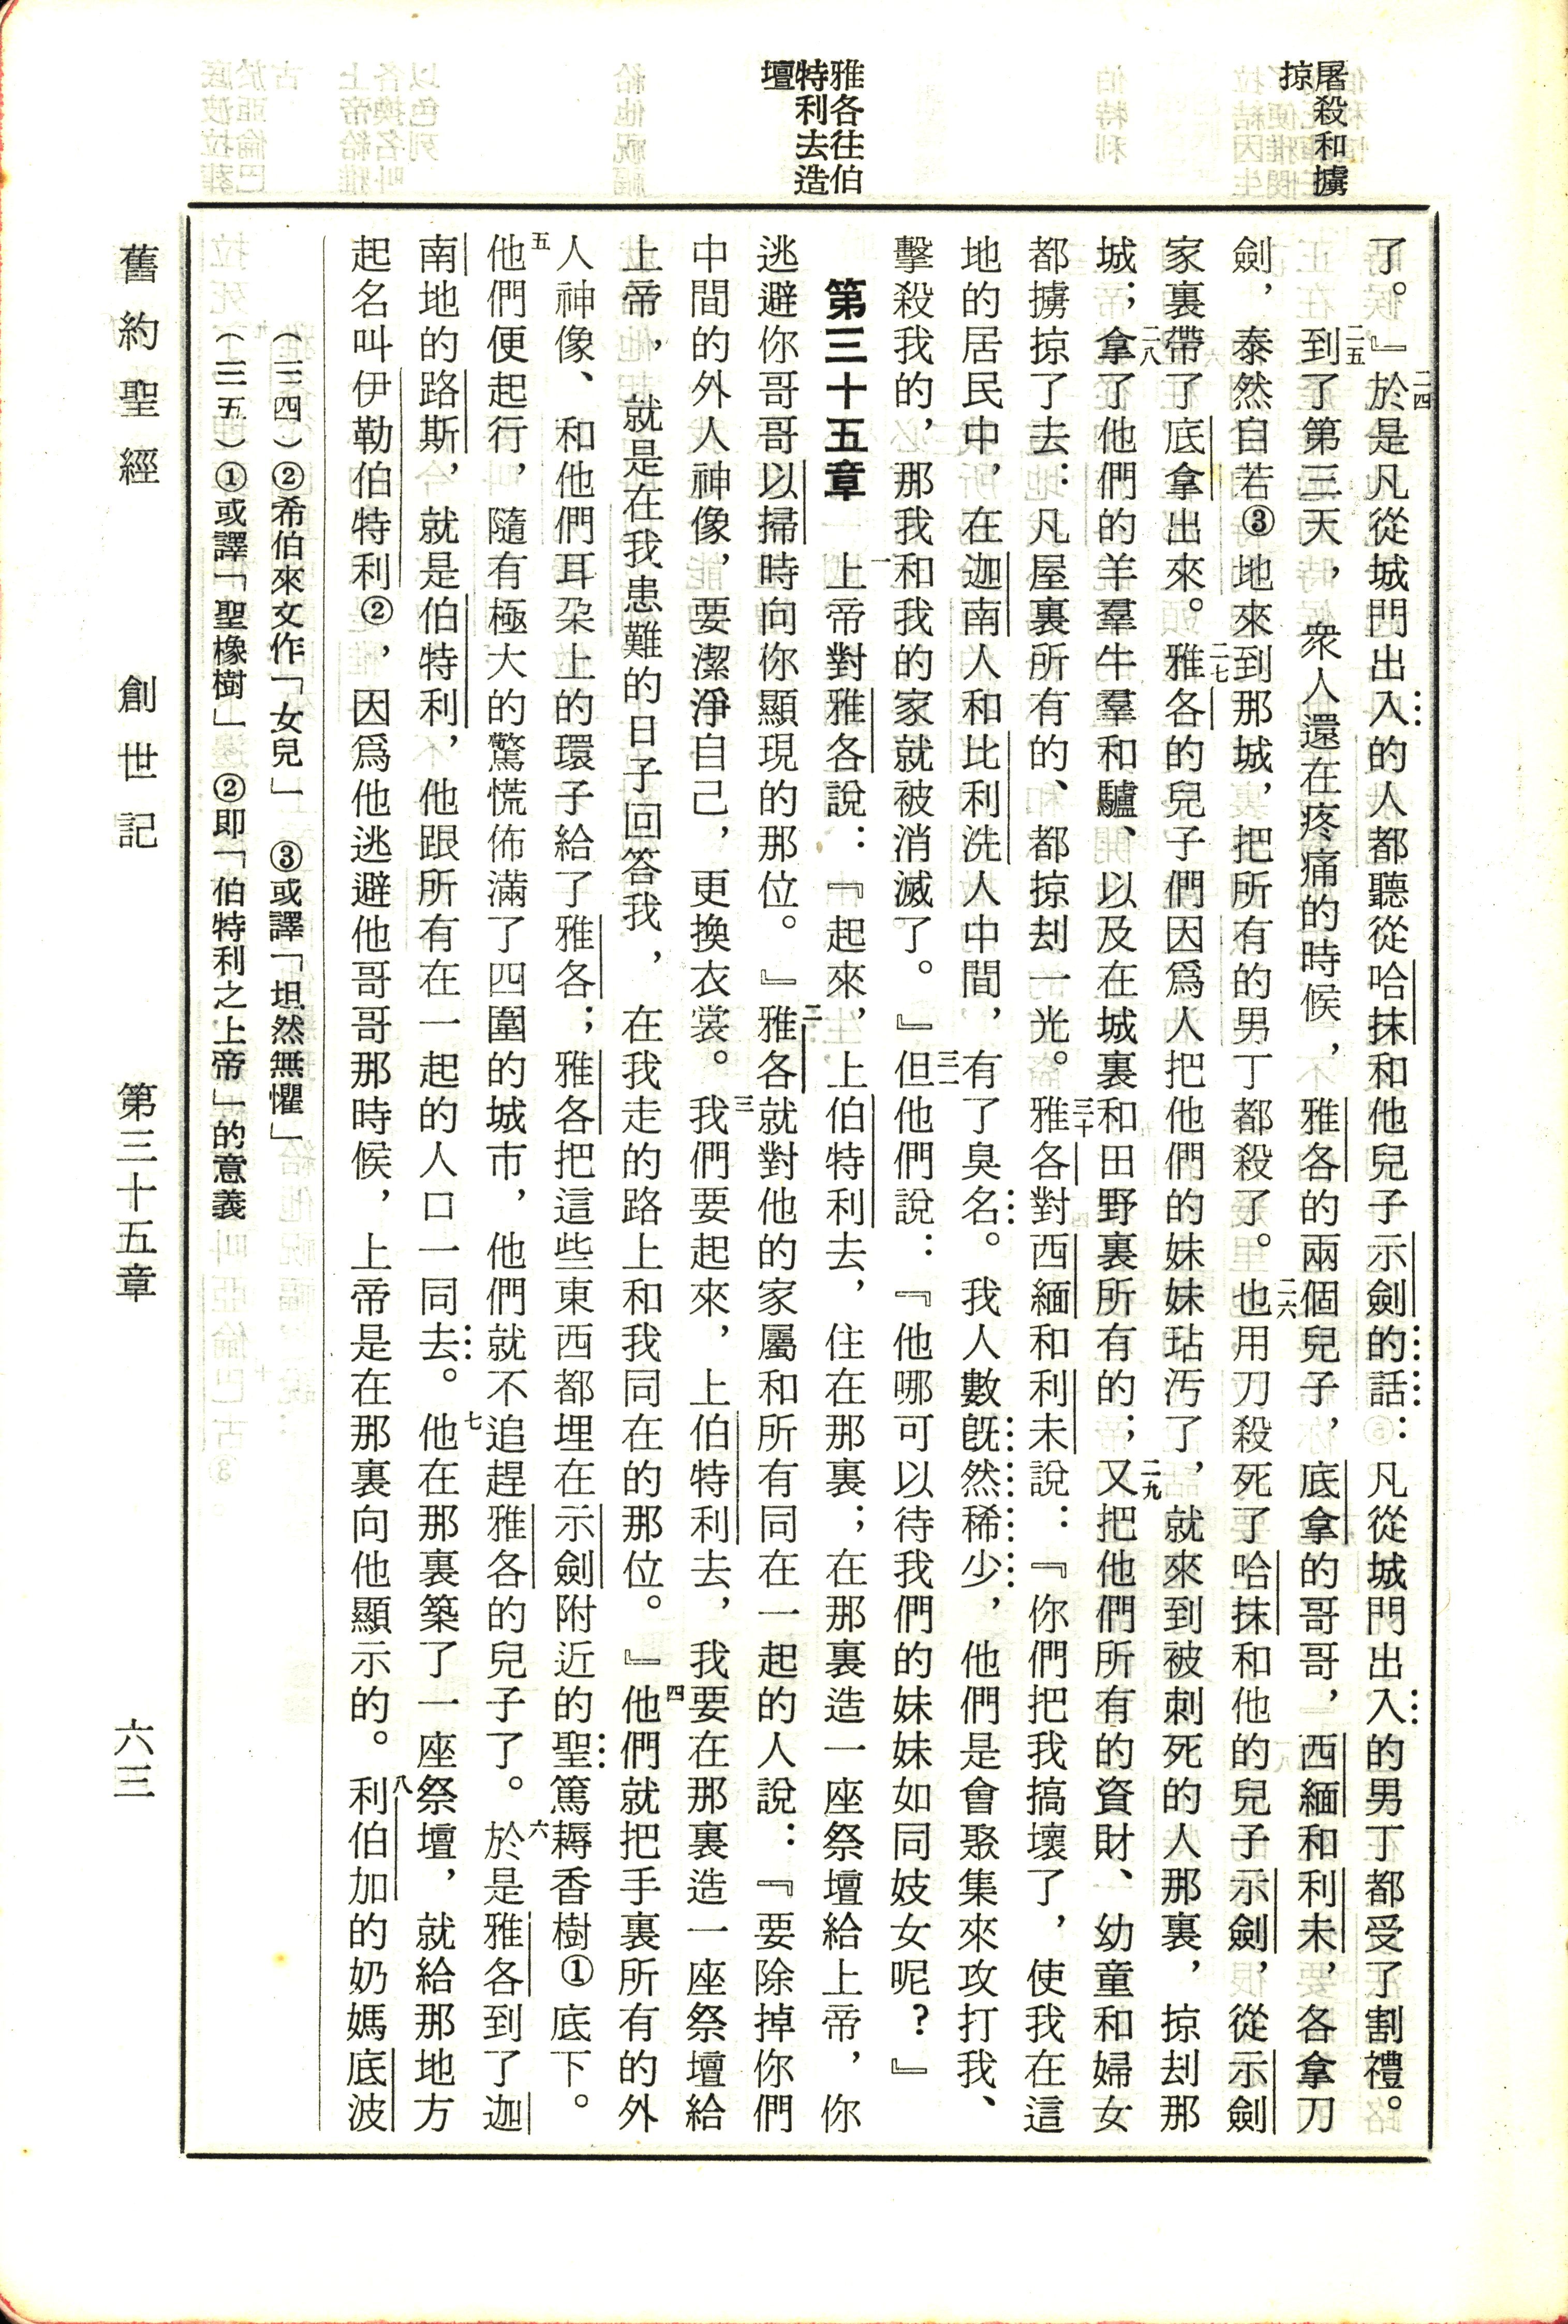 屠殺和擄
掠
雅各往伯
特利去造
壇
了。』二四於是凡從城門出入的人都聽從哈抹和他兒子示劍的話：凡從城門出入的男丁都受了割禮。
二五到了第三天，衆人還在疼痛的時候，雅各的兩個兒子，底拿的哥哥，西緬和利未，各拿刀
劍，泰然自若③地來到那城，把所有的男丁都殺了。二六也用刀殺死了哈抹和他的兒子示劍，從示劍
家裏帶了底拿出來。二七雅各的兒子們因爲人把他們的妹妹玷汚了，就來到被刺死的人那裏，掠刦那
城；二八拿了他們的羊羣牛羣和驢、以及在城裏和田野裏所有的；二九又把他們所有的資財、幼童和婦女
都擄掠了去：凡屋裏所有的、都掠刦一光。三十雅各對西緬和利未說：『你們把我搞壞了，使我在這
地的居民中，在迦南人和比利洗人中間，有了臭名。我人數旣然稀少，他們是會聚集來攻打我、
擊殺我的，那我和我的家就被消滅了。』三一但他們說：『他哪可以待我們的妹妹如同妓女呢？』
第三十五章　一上帝對雅各說：『起來，上伯特利去，住在那裏；在那裏造一座祭壇給上帝，你
逃避你哥哥以掃時向你顯現的那位。』二雅各就對他的家屬和所有同在一起的人說：『要除掉你們
中間的外人神像，要潔淨自己，更換衣裳。三我們要起來，上伯特利去，我要在那裏造一座祭壇給
上帝，就是在我患難的日子回答我，在我走的路上和我同在的那位。』四他們就把手裏所有的外
人神像、和他們耳朶上的環子給了雅各；雅各把這些東西都埋在示劍附近的聖篤耨香樹①底下。
五他們便起行，隨有極大的驚慌佈滿了四圍的城市，他們就不追趕雅各的兒子了。六於是雅各到了迦
南地的路斯，就是伯特利，他跟所有在一起的人口一同去。七他在那裏築了一座祭壇，就給那地方
起名叫伊勒伯特利②，因爲他逃避他哥哥那時候，上帝是在那裏向他顯示的。八利伯加的奶媽底波
（三四）②希伯來文作「女兒」　③或譯「坦然無懼」
（三五）①或譯「聖橡樹」　②即「伯特利之上帝」的意義
舊約聖經　創世記　第三十五章　六三